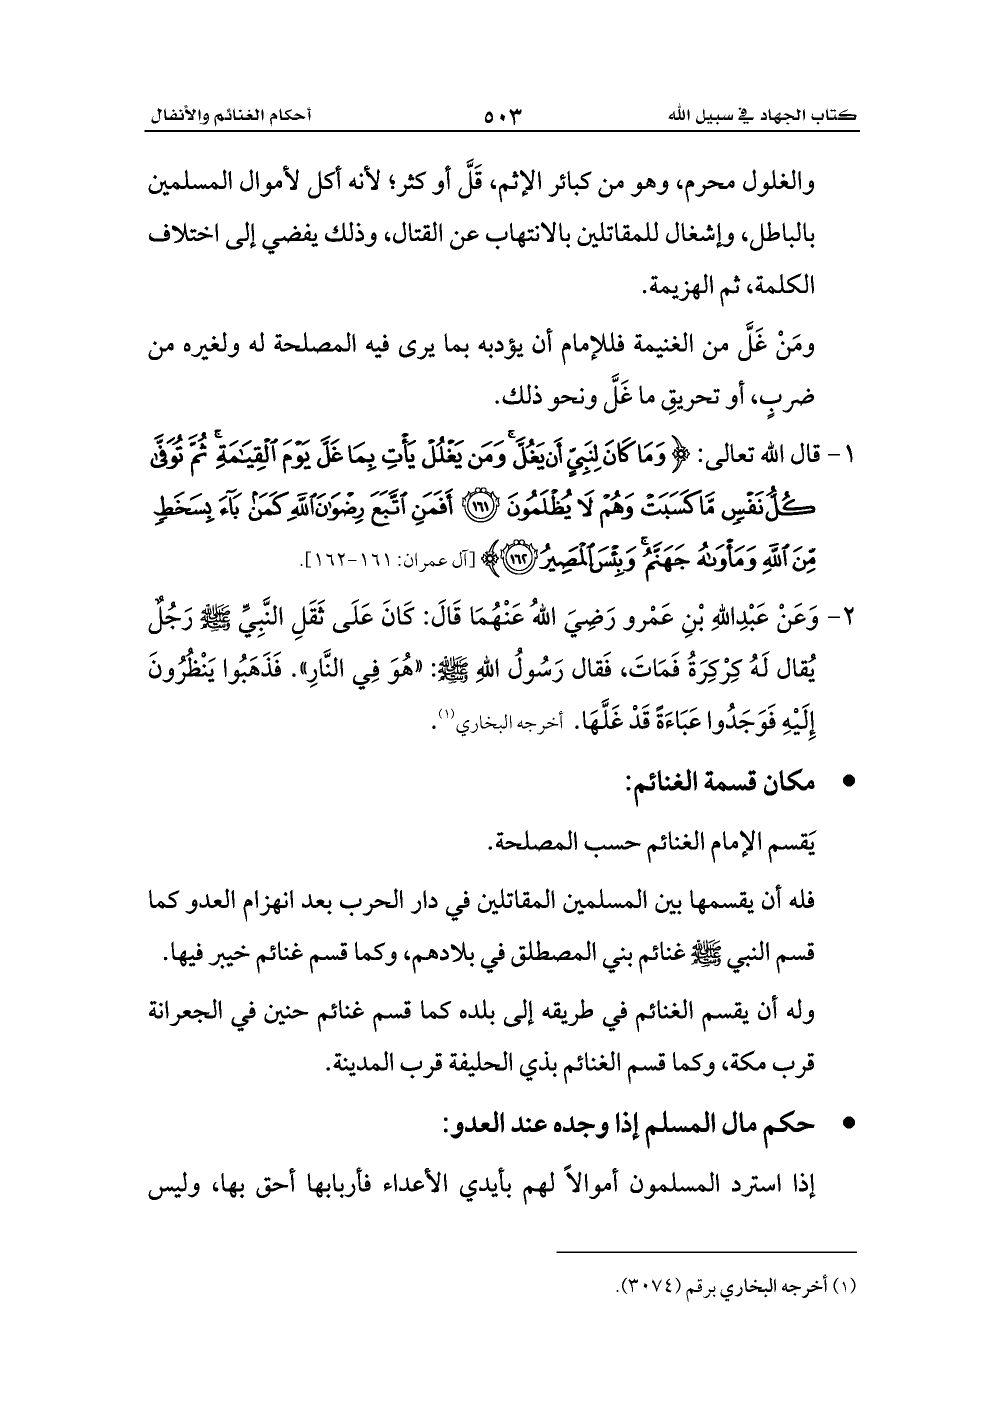 كتاب الجهاد في سبيل الله ٥٠٣ أحكام الغنائم والأنفال
والغلول محرم، وهو من كبائر الإثم، قَلَّ أو كثر؛ لأنه أكل لأموال المسلمين
بالباطل، وإشغال للمقاتلين بالانتهاب عن القتال، وذلك يفضي إلى اختلاف
الكلمة، ثم الهزيمة.
ومَنْ غَلَّ من الغنيمة فللإمام أن يؤدبه بما يرى فيه المصلحة له ولغيره من
ضربٍ، أو تحريقِ ما غَلَّ ونحو ذلك.
١- قال الله تعالى: ﴿ وَمَا كَانَ لِنَبِيٍّ أَن يَغُلَّ ۚ وَمَن يَغْلُلْ يَأْتِ بِمَا غَلَّ يَوْمَ ٱلْقِيَـٰمَةِ ۚ ثُمَّ تُوَفَّىٰ
كُلُّ نَفْسٍ مَّا كَسَبَتْ وَهُمْ لَا يُظْلَمُونَ ﴿١٦١﴾ أَفَمَنِ ٱتَّبَعَ رِضْوَٰنَ ٱللَّهِ كَمَنۢ بَآءَ بِسَخَطٍ
مِّنَ ٱللَّهِ وَمَأْوَىٰهُ جَهَنَّمُ ۚ وَبِئْسَ ٱلْمَصِيرُ ﴿١٦٢﴾ ﴾ [آل عمران: ١٦١-١٦٢].
٢- وَعَنْ عَبْدِاللهِ بْنِ عَمْرو رَضِيَ اللهُ عَنْهُمَا قَالَ: كَانَ عَلَى ثَقَلِ النَّبِيِّ ﷺ رَجُلٌ
يُقال لَهُ كِرْكِرَةُ فَمَاتَ، فَقال رَسُولُ اللهِ ﷺ: «هُوَ فِي النَّارِ». فَذَهَبُوا يَنْظُرُونَ
إِلَيْهِ فَوَجَدُوا عَبَاءَةً قَدْ غَلَّهَا. أخرجه البخاري(١).
• مكان قسمة الغنائم:
يَقسم الإمام الغنائم حسب المصلحة.
فله أن يقسمها بين المسلمين المقاتلين في دار الحرب بعد انهزام العدو كما
قسم النبي ﷺ غنائم بني المصطلق في بلادهم، وكما قسم غنائم خيبر فيها.
وله أن يقسم الغنائم في طريقه إلى بلده كما قسم غنائم حنين في الجعرانة
قرب مكة، وكما قسم الغنائم بذي الحليفة قرب المدينة.
• حكم مال المسلم إذا وجده عند العدو:
إذا استرد المسلمون أموالاً لهم بأيدي الأعداء فأربابها أحق بها، وليس
(١) أخرجه البخاري برقم (٣٠٧٤).